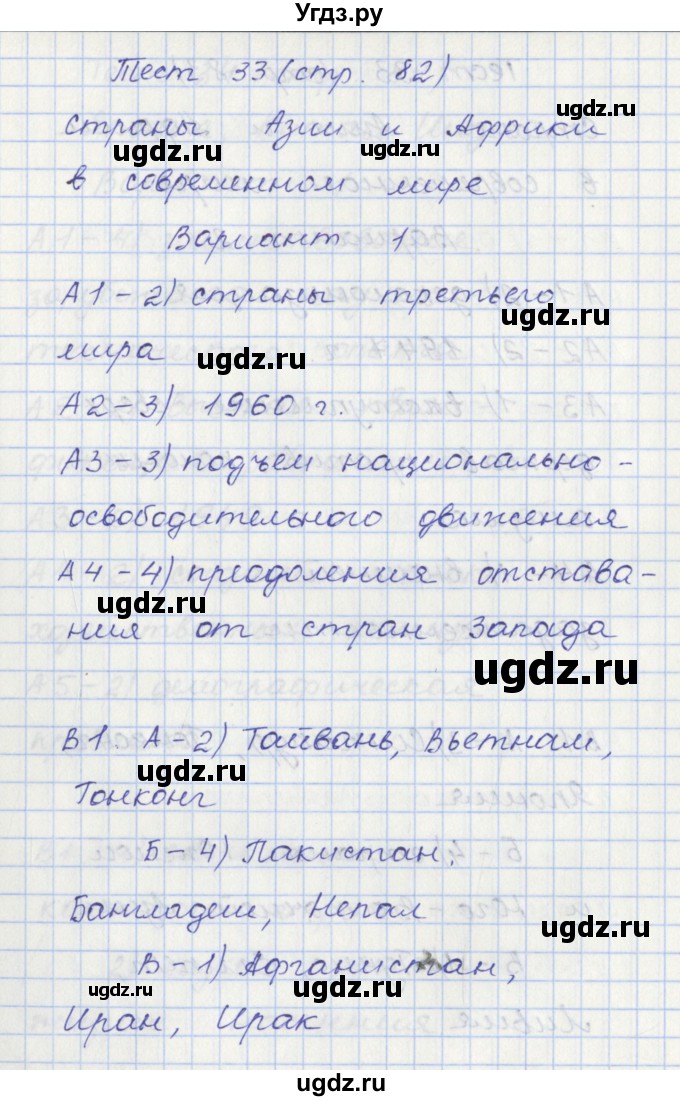 Угдз.ру
Тест 33 (стр. 82)
ugdz.ru
страны Азии и Африки
ugdz.ru ugdz.ru
в современном мире
Вариант 1
А1 - 2) страны третьего
ugdz.ru
мира
ugdz.ru
А2 - 3) 1960 г.
А3 - 3) подъем национально-
освободительного движения
А4 - 4) преодоления отстава-
ugdz.ru
ния от стран Запада
ugdz.ru
В1. А - 2) Тайвань, Вьетнам,
ugdz.ru
Гонконг
Б - 4) Пакистан,
Бангладеш, Непал
ugdz.ru
В - 1) Афганистан,
ugdz.ru ugdz.ru
Иран, Ирак
ugdz.ru